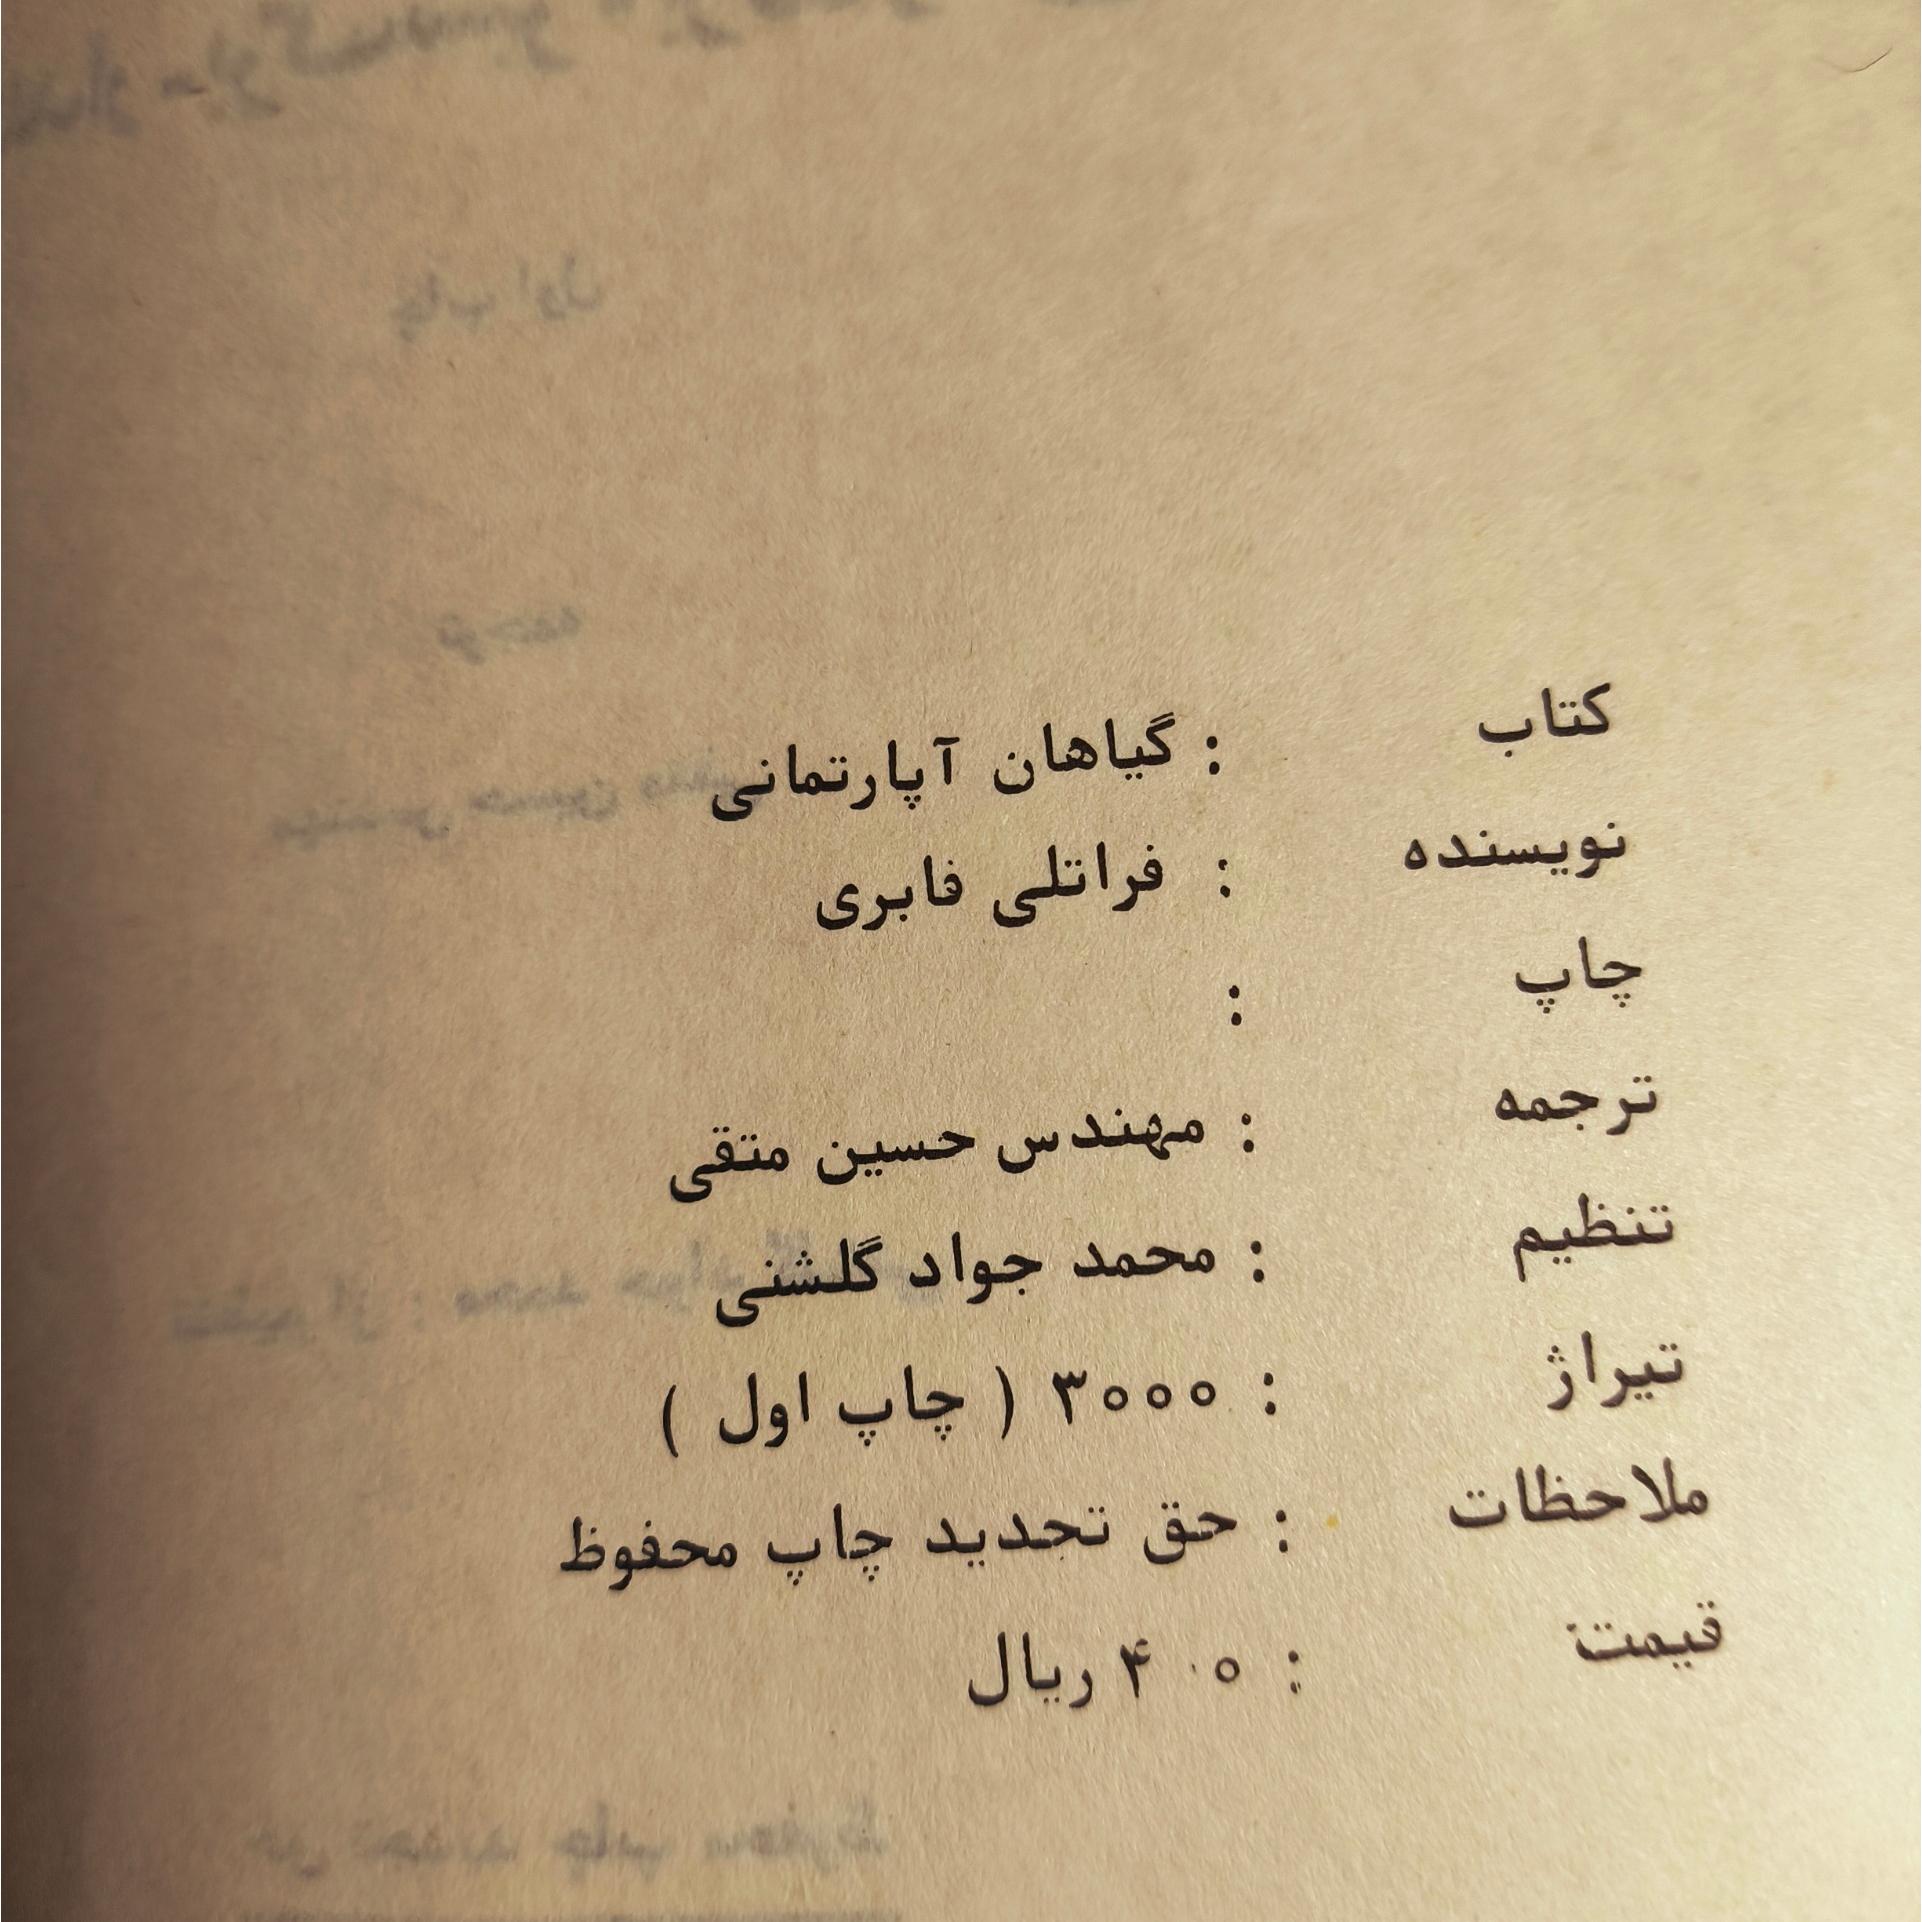 کتاب : گیاهان آپارتمانی
نویسنده : فراتلی فابری
چاپ :
ترجمه : مهندس حسین متقی
تنظیم : محمد جواد گلشنی
تیراژ : ۳۰۰۰ ( چاپ اول )
ملاحظات : حق تجدید چاپ محفوظ
قیمت : ۴۰۰ ریال